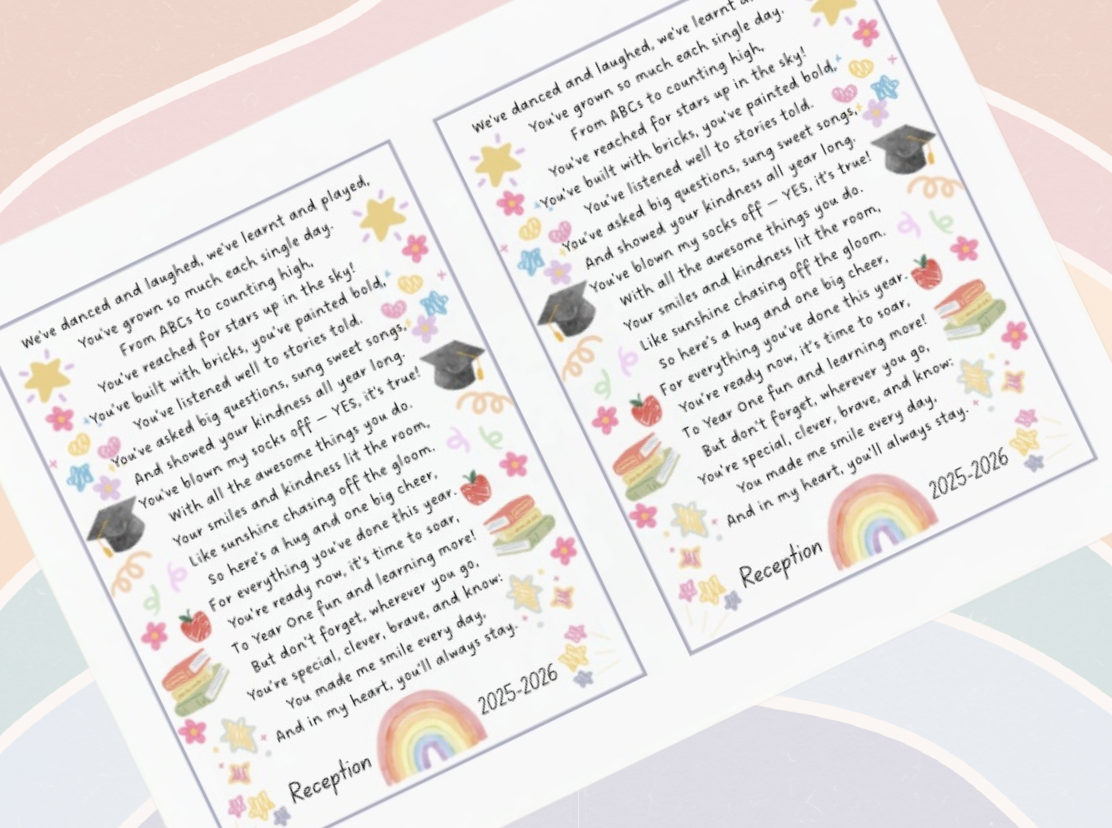 We've danced and laughed, we've learnt and played,
You've grown so much each single day.
From ABCs to counting high,
You've reached for stars up in the sky!
You've built with bricks, you've painted bold,
You've listened well to stories told.
You've asked big questions, sung sweet songs,
And showed your kindness all year long.
You've blown my socks off – YES, it's true!
With all the awesome things you do.
Your smiles and kindness lit the room,
Like sunshine chasing off the gloom.
So here's a hug and one big cheer,
For everything you've done this year.
You're ready now, it's time to soar,
To Year One fun and learning more!
But don't forget, wherever you go,
You're special, clever, brave, and know:
You made me smile every day,
And in my heart, you'll always stay.
Reception 2025-2026
We've danced and laughed, we've learnt
You've grown so much each single day.
From ABCs to counting high,
You've reached for stars up in the sky!
You've built with bricks, you've painted bold,
You've listened well to stories told.
You've asked big questions, sung sweet songs,
And showed your kindness all year long.
You've blown my socks off – YES, it's true!
With all the awesome things you do.
Your smiles and kindness lit the room,
Like sunshine chasing off the gloom.
So here's a hug and one big cheer,
For everything you've done this year.
You're ready now, it's time to soar,
To Year One fun and learning more!
But don't forget, wherever you go,
You're special, clever, brave, and know:
You made me smile every day,
And in my heart, you'll always stay.
Reception 2025-2026